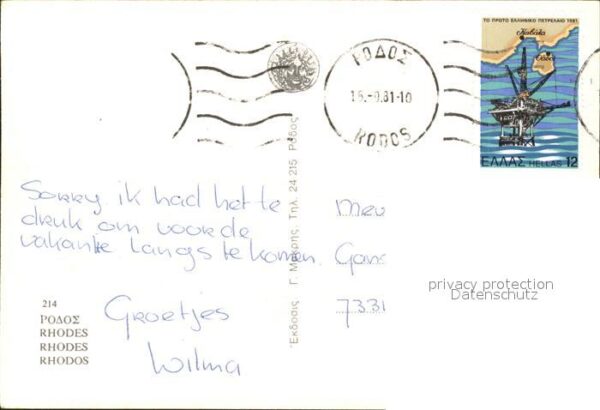 ΤΟ ΠΡΩΤΟ ΕΛΛΗΝΙΚΟ ΠΕΤΡΕΛΑΙΟ 1981
Καβάλα
Θάσος
ΕΛΛΑΣ HELLAS 12
ΡΟΔΟΣ
15.-9.81-10
RODOS
Sorry ik had het te
druk om voor de
vakantie langs te komen.
Groetjes
Wilma
Mev
Gans
7331
privacy protection
Datenschutz
214
ΡΟΔΟΣ
RHODES
RHODES
RHODOS
Ἐκδοσις Γ. Μακρῆς, Τηλ. 24 215 Ρόδος